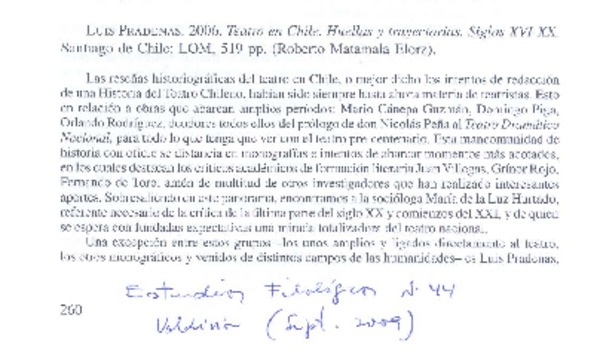 LUIS PRADENAS. 2006. Teatro en Chile. Huellas y trayectorias. Siglos XVI XX.
Santiago de Chile: LOM, 519 pp. (Roberto Matamala Elorz).
Las reseñas historiográficas del teatro en Chile, o mejor dicho los intentos de redacción
de una Historia del Teatro Chileno, habían sido siempre hasta ahora materia de teatristas. Esto
en relación a obras que abarcan amplios períodos: Mario Cánepa Guzmán, Domingo Piga,
Orlando Rodríguez, deudores todos ellos del prólogo de don Nicolás Peña al Teatro Dramático
Nacional, para todo lo que tenga que ver con el teatro pre-centenario. Esta mancomunidad de
historia con oficio se distancia en monografías e intentos de abarcar momentos más acotados,
en los cuales destacan los críticos académicos de formación literaria Juan Villegas, Grínor Rojo,
Fernando de Toro, amén de multitud de otros investigadores que han realizado interesantes
aportes. Sobresaliendo en este panorama, encontramos a la socióloga María de la Luz Hurtado,
referente necesario de la crítica de la última parte del siglo XX y comienzos del XXI, y de quien
se espera con fundadas expectativas una mirada totalizadora del teatro nacional.
Una excepción entre estos grupos –los unos amplios y ligados directamente al teatro,
los otros monográficos y venidos de distintos campos de las humanidades– es Luis Pradenas,
Estudios Filológicos N. 44
260
Valdivia (Sept. 2009)